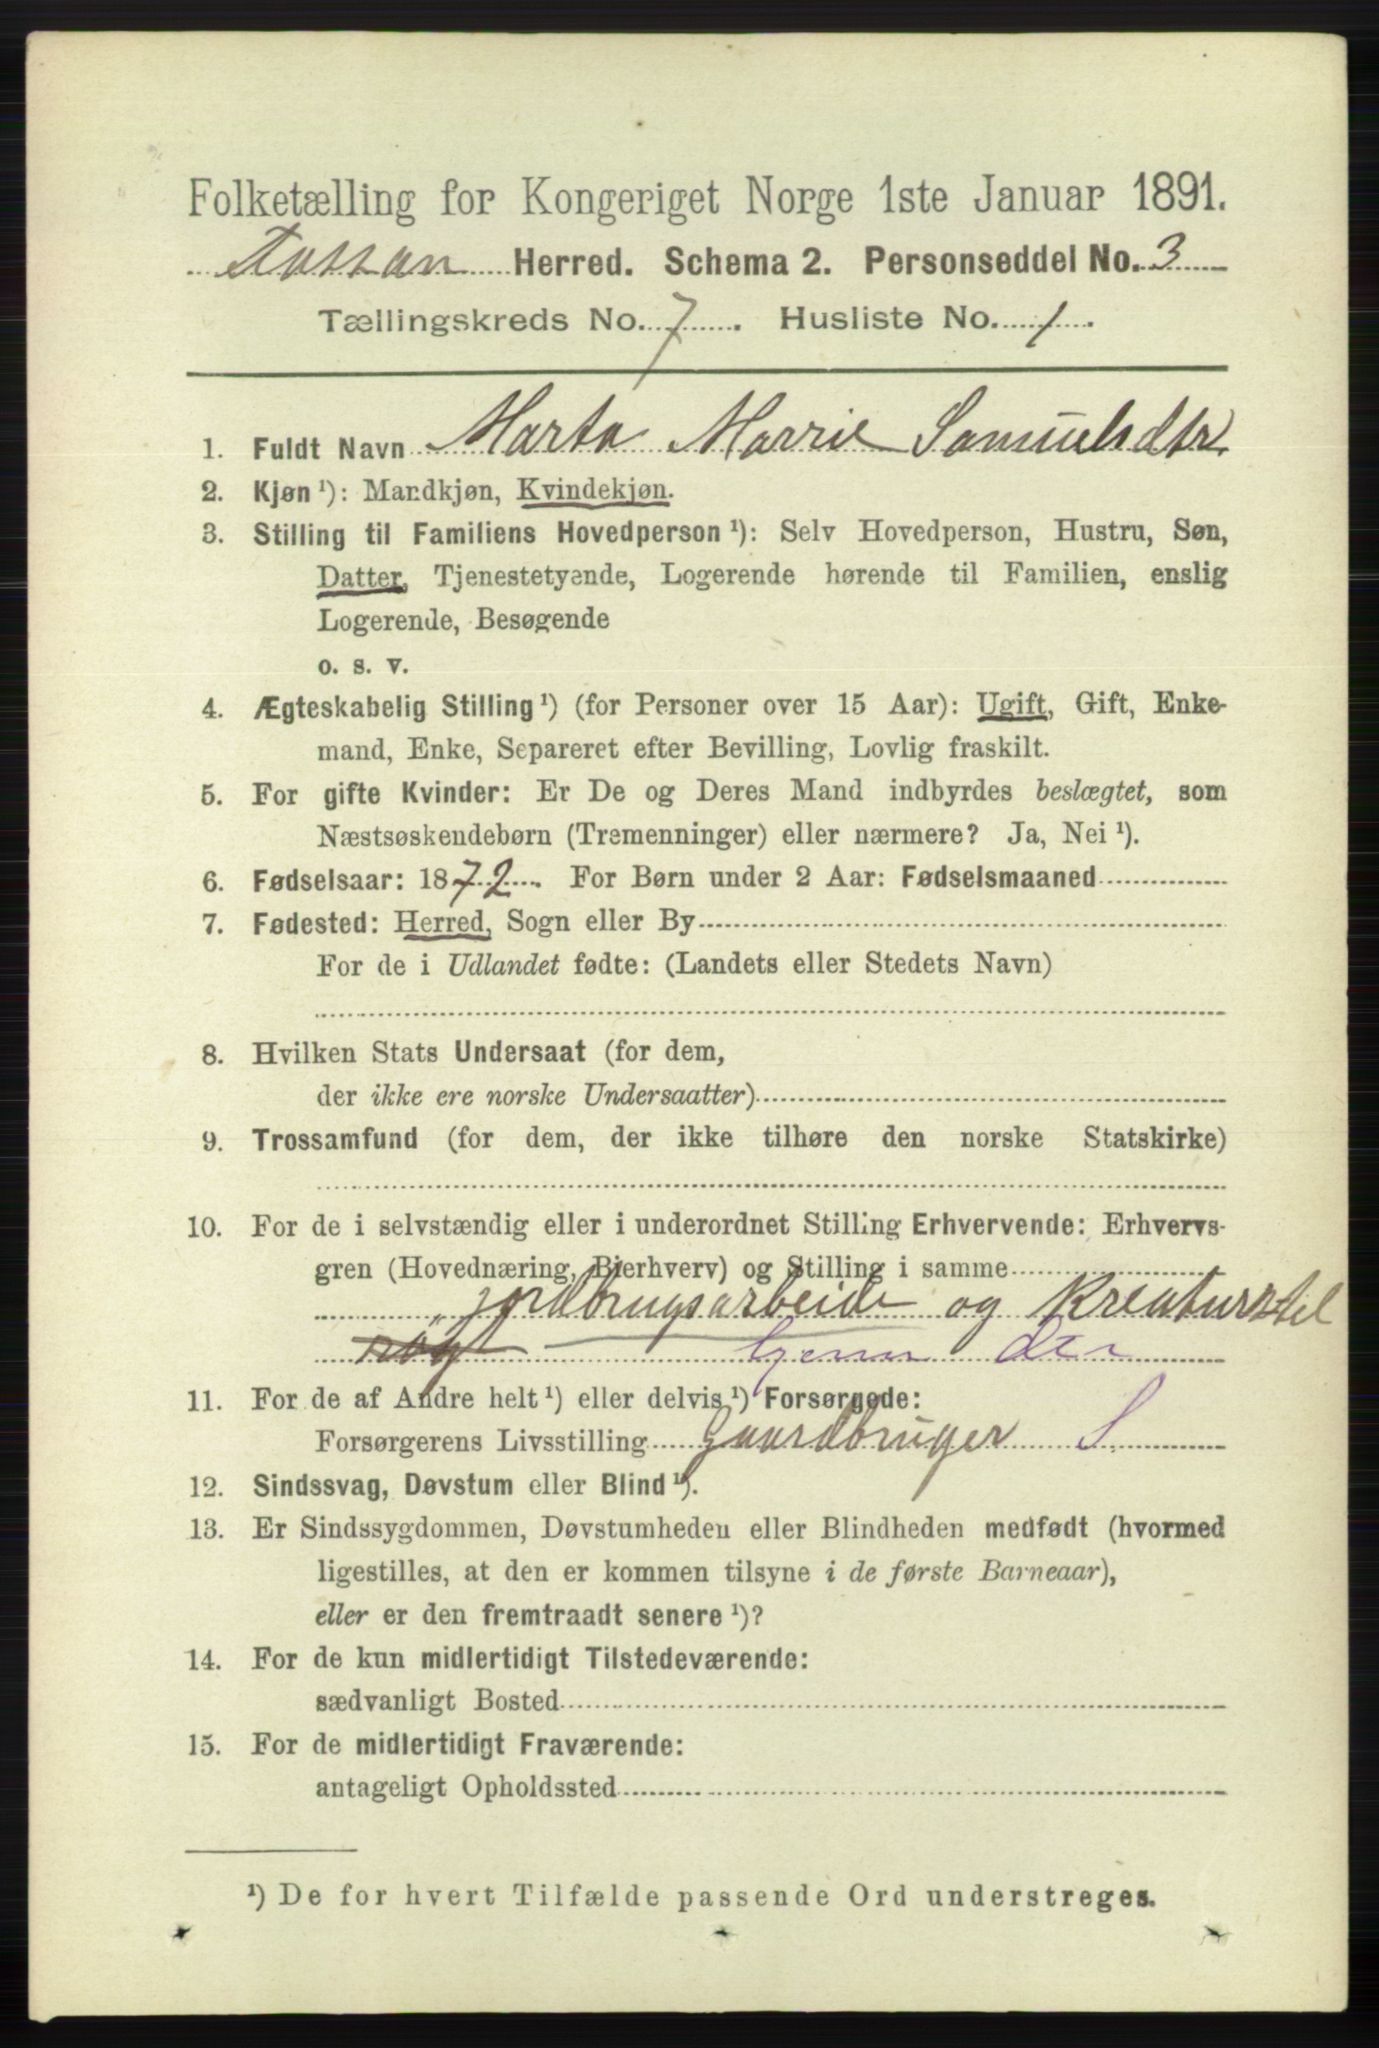 Folketælling for Kongeriget Norge 1ste Januar 1891.
Herred. Schema 2. Personseddel No. 3
Tællingskreds No. 7. Husliste No. 1.
1. Fuldt Navn Marta Marrie Samuelsdtr
2. Kjøn ¹): Mandkjøn, Kvindekjøn.
3. Stilling til Familiens Hovedperson ¹): Selv Hovedperson, Hustru, Søn,
Datter, Tjenestetyende, Logerende hørende til Familien, enslig
Logerende, Besøgende
o. s. v.
4. Ægteskabelig Stilling ¹) (for Personer over 15 Aar): Ugift, Gift, Enke-
mand, Enke, Separeret efter Bevilling, Lovlig fraskilt.
5. For gifte Kvinder: Er De og Deres Mand indbyrdes beslægtet, som
Næstsøskendebørn (Tremenninger) eller nærmere? Ja, Nei ¹).
6. Fødselsaar: 1872. For Børn under 2 Aar: Fødselsmaaned
7. Fødested: Herred, Sogn eller By
For de i Udlandet fødte: (Landets eller Stedets Navn)
8. Hvilken Stats Undersaat (for dem,
der ikke ere norske Undersaatter)
9. Trossamfund (for dem, der ikke tilhøre den norske Statskirke)
10. For de i selvstændig eller i underordnet Stilling Erhvervende: Erhvervs-
gren (Hovednæring, Bierhverv) og Stilling i samme
jordbrugsarbeide og Kreaturstel
røgt
11. For de af Andre helt ¹) eller delvis ¹) Forsørgede:
Forsørgerens Livsstilling Gaardbruger S.
12. Sindssvag, Døvstum eller Blind ¹).
13. Er Sindssygdommen, Døvstumheden eller Blindheden medfødt (hvormed
ligestilles, at den er kommen tilsyne i de første Barneaar),
eller er den fremtraadt senere ¹)?
14. For de kun midlertidigt Tilstedeværende:
sædvanligt Bosted
15. For de midlertidigt Fraværende:
antageligt Opholdssted
¹) De for hvert Tilfælde passende Ord understreges.